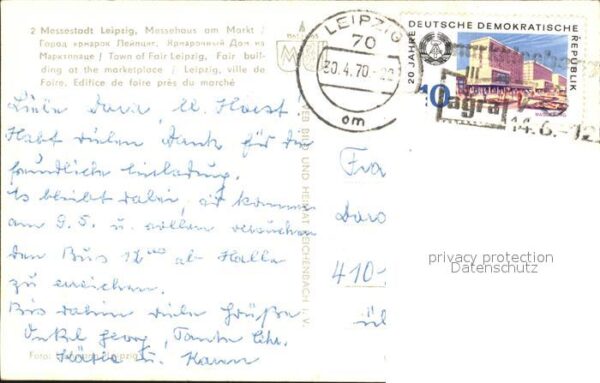 2 Messestadt Leipzig, Messehaus am Markt /
Город ярмарок Лейпциг, Ярмарочный Дом на
Марктплаце / Town of Fair Leipzig, Fair buil-
ding at the marketplace / Leipzig, ville de
Foire, Edifice de foire près du marché
LEIPZIG
70
30.4.70
om
DEUTSCHE DEMOKRATISCHE
REPUBLIK
20 JAHRE
10
agra
14.6.-12
Liebe Dora, u. Horst!
Habt vielen Dank für die
freundliche Einladung.
Es bleibt dabei, wir kommen
am 9.5. u. wollen versuchen
den Bus 12 ab Halle
zu erreichen.
Bis dahin viele Grüße
Onkel Georg, Tante Chr.
Käte u. Karin
BILD UND HEIMAT REICHENBACH I. V.
Foto:
Fra
Doro
410-
privacy protection
Datenschutz